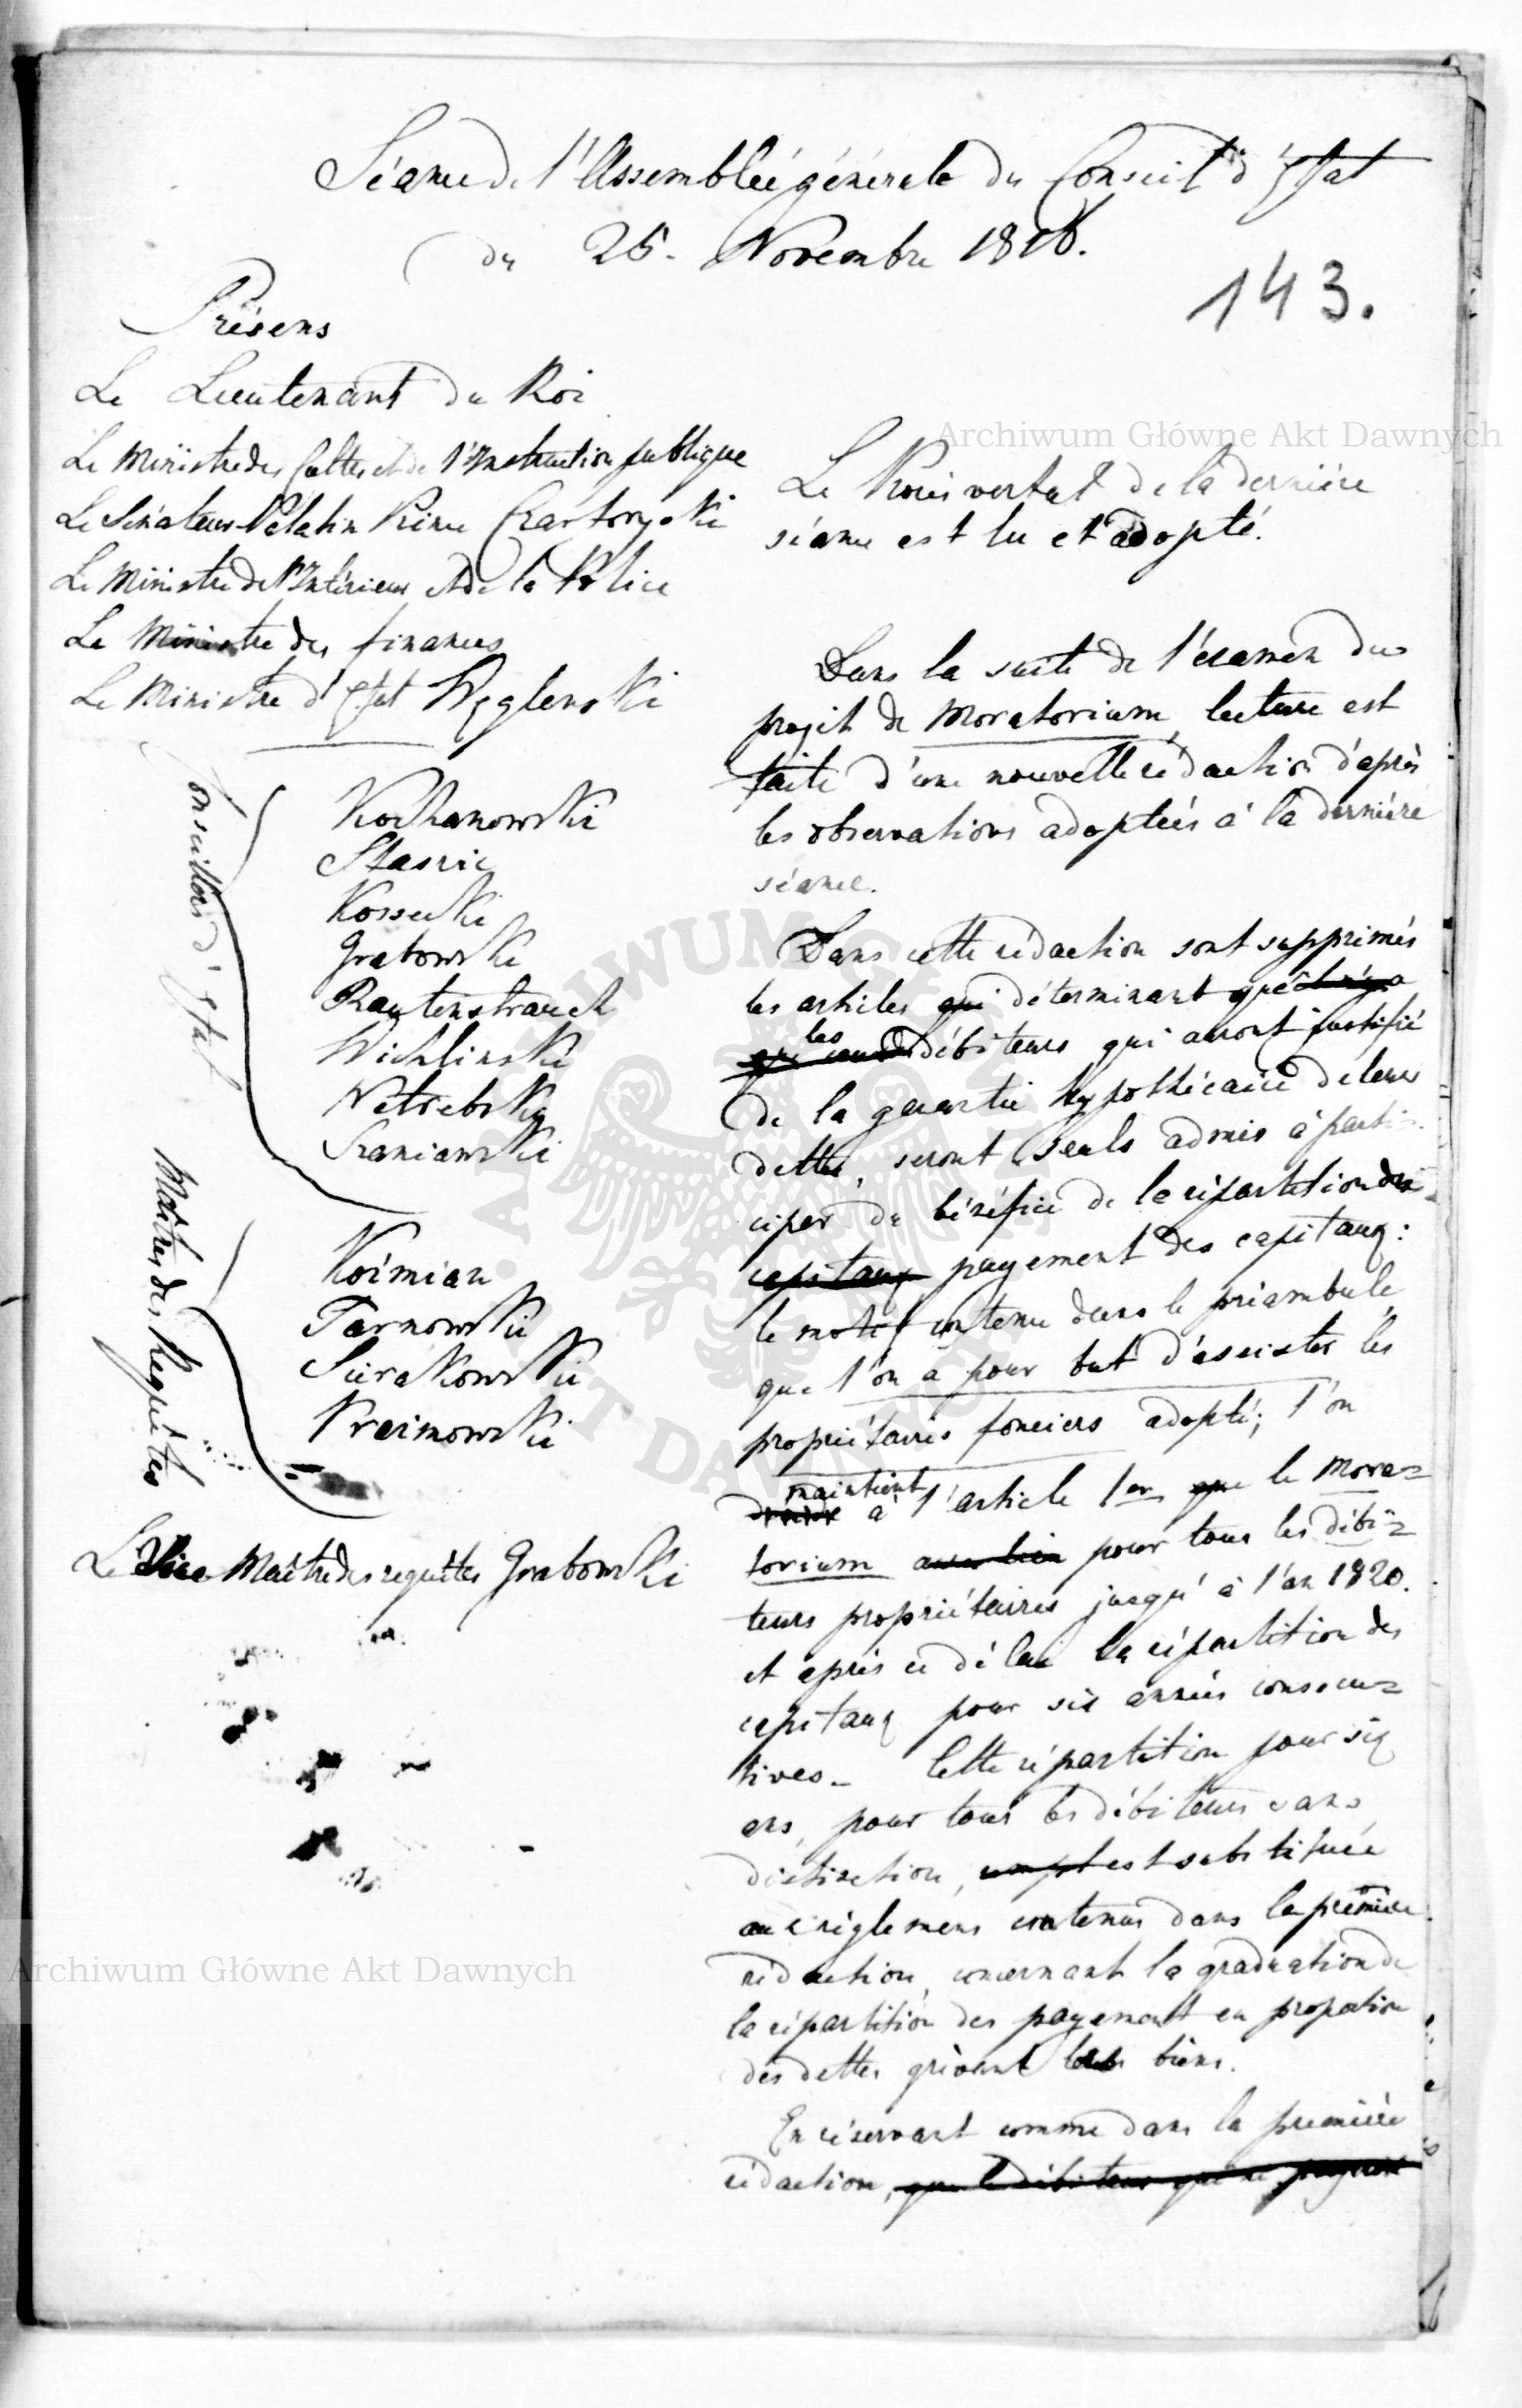 Séance de l'Assemblée générale du Conseil d'Etat
du 25. Novembre 1816.
143.
Présens
Le Lieutenant du Roi
Le Ministre des Cultes et de l'Instruction publique
Le Sénateur Palatin Prince Czartoryski
Le Ministre de l'Intérieur et de la Police
Le Ministre des finances
Le Ministre d'Etat Węglenski
Conseillers d'Etat
Kochanowski
Staszic
Kossecki
Grabowski
Rautenstrauch
Wichlinski
Netrebsky
Szaniawski
Maîtres des Requêtes
Koźmian
Tarnowski
Sierakowski
Krzimowski
Le Vice Maître des requêtes Grabowski
Archiwum Główne Akt Dawnych
Le Procès verbal de la dernière
séance est lu et adopté.
Dans la suite de l'examen du
projet de Moratorium, lecture est
faite d'une nouvelle rédaction d'après
les observations adoptées à la dernière
séance.
Dans cette rédaction sont supprimés
les articles qui déterminant que
les débiteurs qui auront justifié
de la garantie hypothécaire de leurs
dettes, seront seuls admis à parti-
ciper du bénéfice de la répartition des
capitaux payement des capitaux:
le motif contenu dans le préambule
que l'on a pour but d'assister les
propriétaires fonciers adopté; l'on
maintient à l'article 1er que le Mora=
torium avec lieu pour tous les débi=
teurs propriétaires jusqu'à l'an 1820.
et après ce délai la répartition des
capitaux pour six années consecu=
tives. Cette répartition pour six
ans, pour tous les débiteurs sans
distinction, est substituée
aux règlemens contenus dans la première
rédaction, concernant la graduation de
la répartition des payement en proportion
des dettes grévant leurs biens.
En réservant comme dans la première
rédaction, que le débiteur qui ne payeroit
ARCHIWUM GŁÓWNE AKT DAWNYCH
Archiwum Główne Akt Dawnych